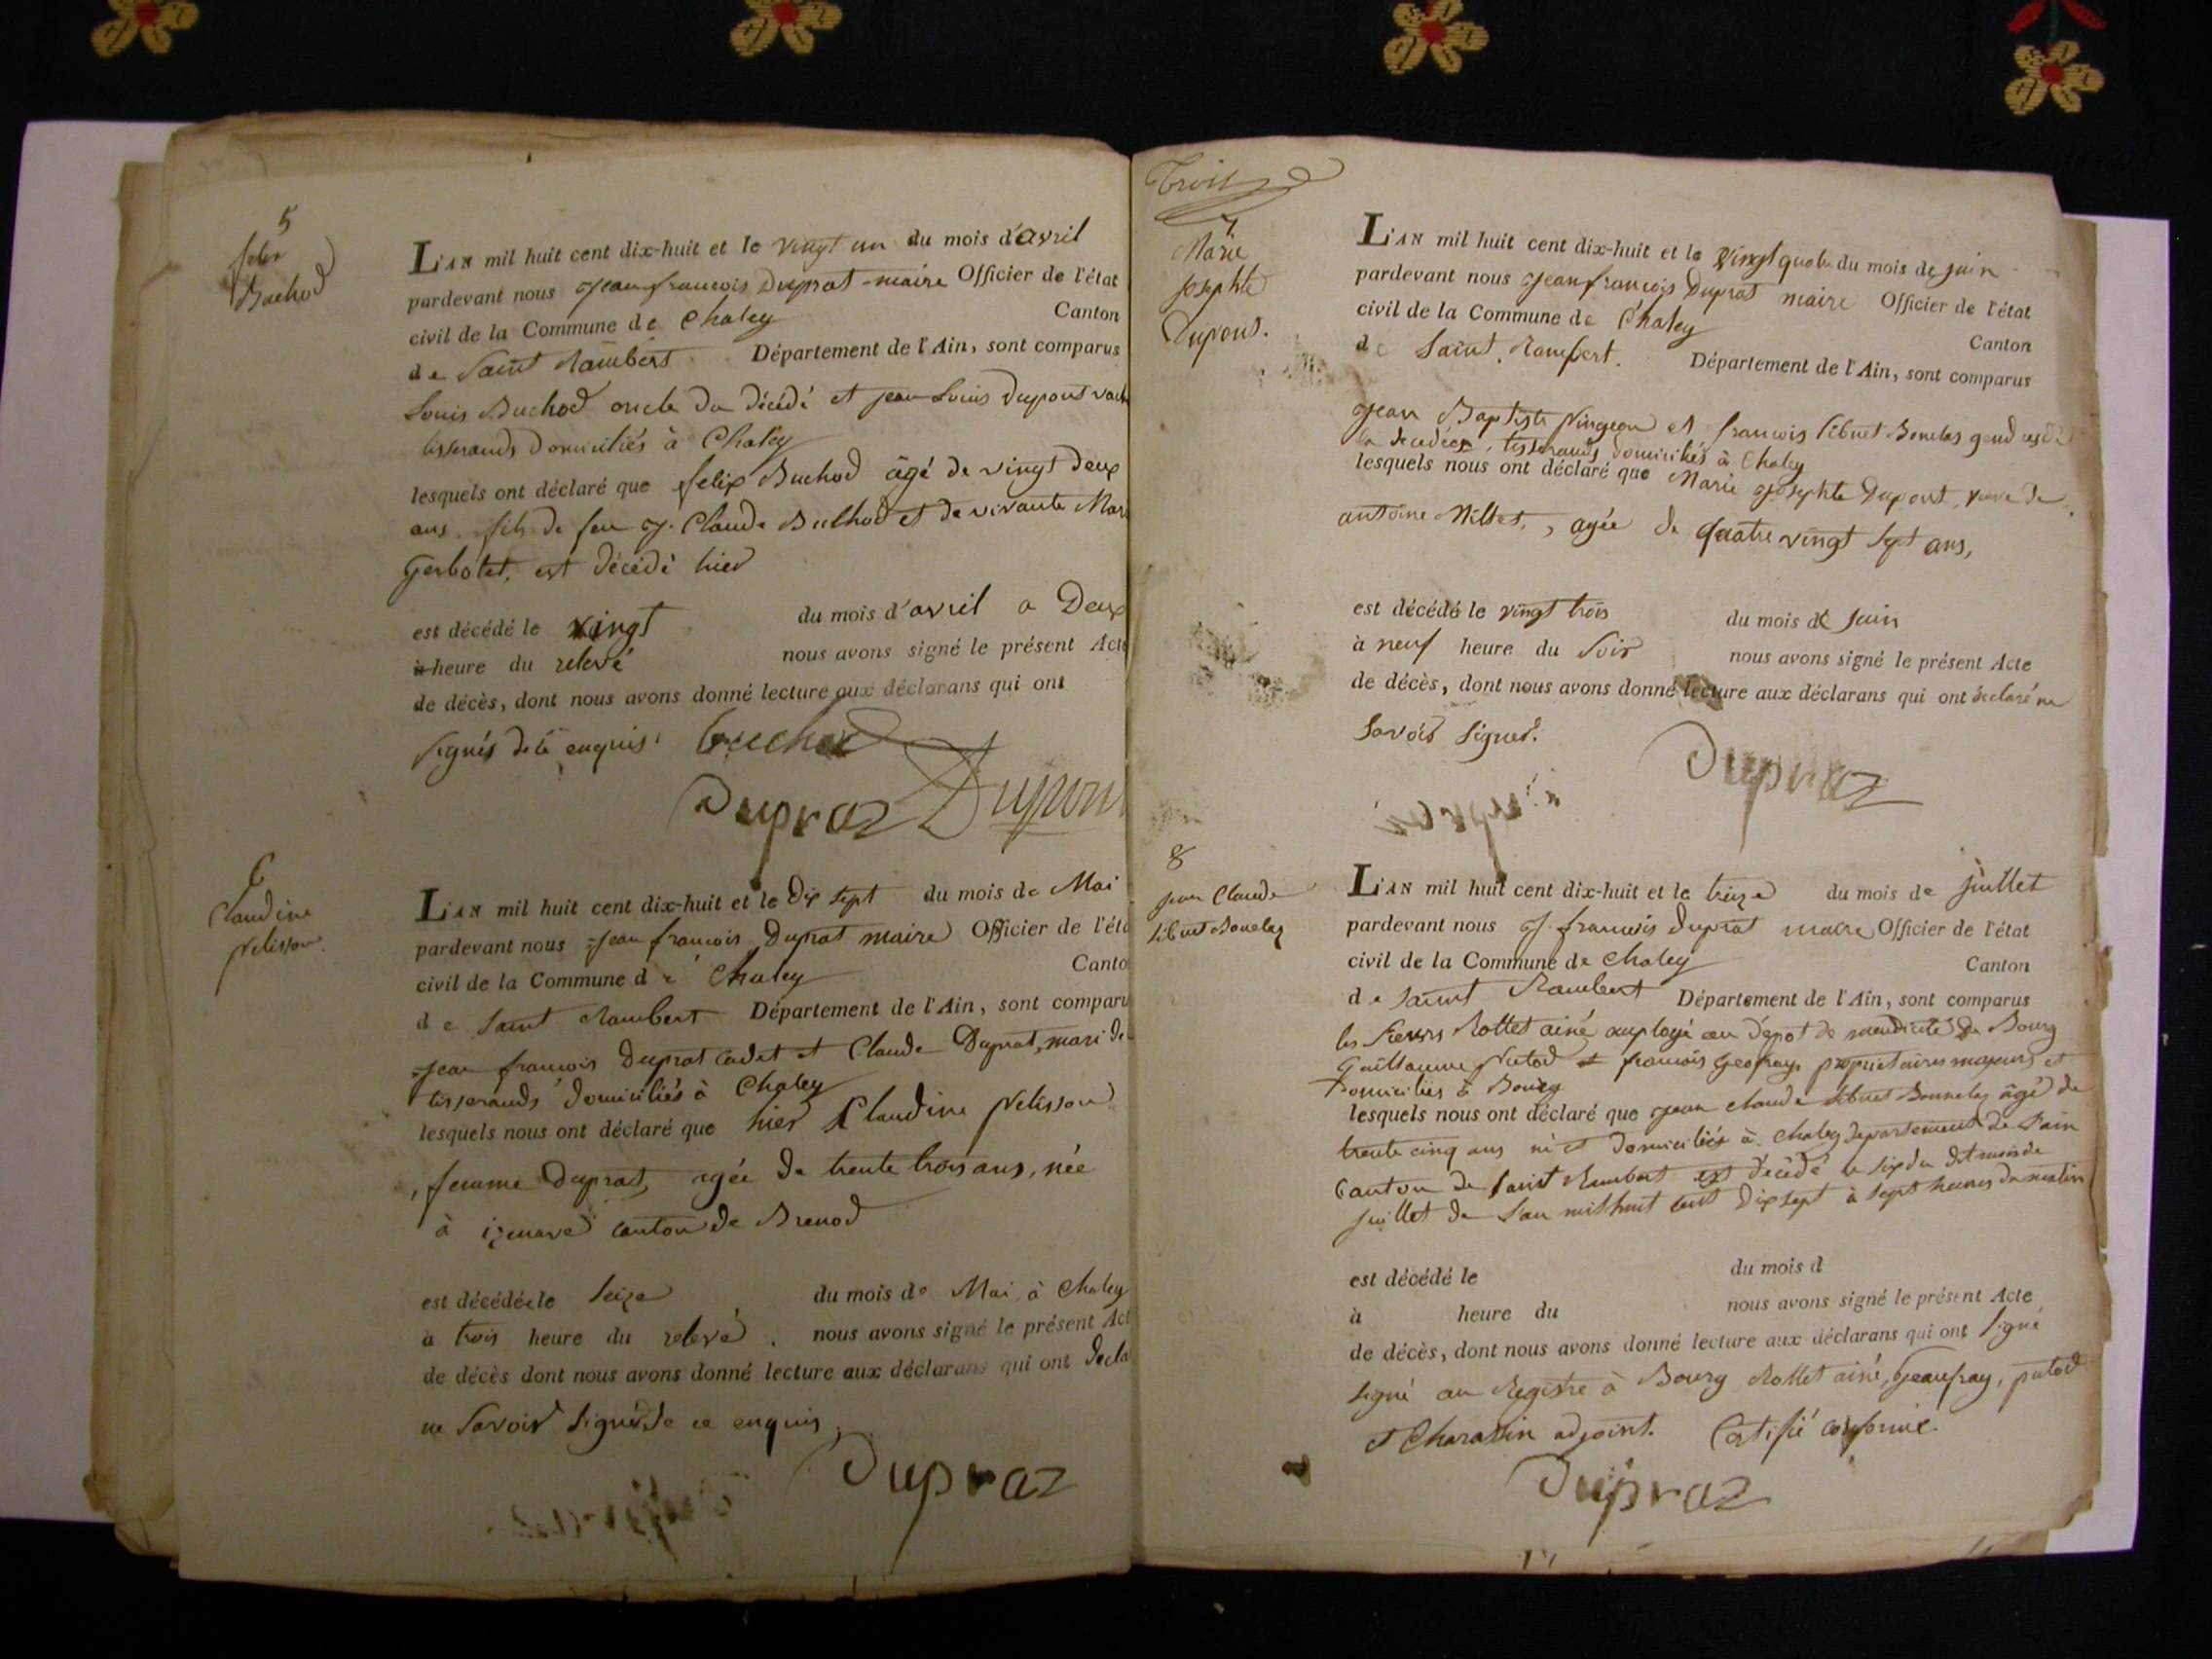 5
felix
Buchod
L'AN mil huit cent dix-huit et le vingt un du mois d'avril
pardevant nous jean françois Duprat maire Officier de l'état
civil de la Commune de Chaley Canton
de Saint Rambert Département de l'Ain, sont comparus
Louis Buchod oncle du décédé et jean Louis Dupont
tisserands domiciliés à Chaley
lesquels ont déclaré que felix Buchod âgé de vingt deux
ans, fils de feu j. Claude Buchod et de vivante Mari
Gerbotet, est décédé hier
est décédé le vingt du mois d'avril a Deux
à heure du relevé nous avons signé le présent Acte
de décès, dont nous avons donné lecture aux déclarans qui ont
signés de ce enquis. buchod
Dupraz Dupont
6
Claudine
Pelisson
L'AN mil huit cent dix-huit et le Dix sept du mois de Mai
pardevant nous jean françois Duprat maire Officier de l'éta
civil de la Commune de Chaley Canto
de Saint Rambert Département de l'Ain, sont comparu
jean françois Duprat cadet et Claude Duprat, mari de
tisserands domiciliés à Chaley
lesquels nous ont déclaré que hier Claudine Pelisson
femme Duprat, agée de trente trois ans, née
à izenave canton de Brenod
est décédée le seize du mois de Mai, à Chaley
à trois heure du relevé. nous avons signé le présent Act
de décès dont nous avons donné lecture aux déclarans qui ont décla
ne savoir signer de ce enquis
Dupraz
Trois
7
Marie
josephte
Dupont.
L'AN mil huit cent dix-huit et le vingt quatre du mois de juin
pardevant nous jean françois Duprat maire Officier de l'état
civil de la Commune de Chaley Canton
de Saint Rambert. Département de l'Ain, sont comparus
jean Baptiste Pingeon et françois Sibuet Bonelas gendres de
la decedée, tisserands domiciliés à Chaley
lesquels nous ont déclaré que Marie josephte Dupont, veuve de
antoine Millet, agée de quatre vingt sept ans,
est décédé le vingt trois du mois de juin
à neuf heure du soir nous avons signé le présent Acte
de décès, dont nous avons donné lecture aux déclarans qui ont déclaré ne
savoir signer.
Dupraz
8
jean Claude
Sibuet Bonelaz
L'AN mil huit cent dix-huit et le treize du mois de juillet
pardevant nous j. françois Duprat maire Officier de l'état
civil de la Commune de Chaley Canton
de Saint Rambert Département de l'Ain, sont comparus
les sieurs Rollet ainé employé au dépot de mendicité de Bourg
Guillaume Putod et françois Geofray, proprietaires majeurs et
domiciliés à Bourg
lesquels nous ont déclaré que jean claude Sibuet Bonnelaz âgé de
trente cinq ans né et domiciliés à Chaley departement de l'ain
canton de saint Rambert est décédé le six du dit mois de
juillet de l'an mil huit cent dix sept à sept heures du matin
est décédé le du mois d
à heure du nous avons signé le présent Acte
de décès, dont nous avons donné lecture aux déclarans qui ont signé
signé au Registre à Bourg Rollet ainé, Geaufray, putod
et Charassin adjoint. Certifié conforme.
Dupraz